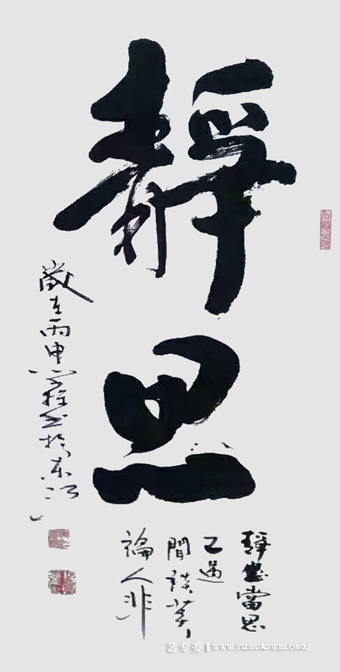 靜思
靜坐當思
己過
閒談莫
論人非
歲在丙申書於東江
艺专委 | WWW.YIZHUANWEI.ORG/